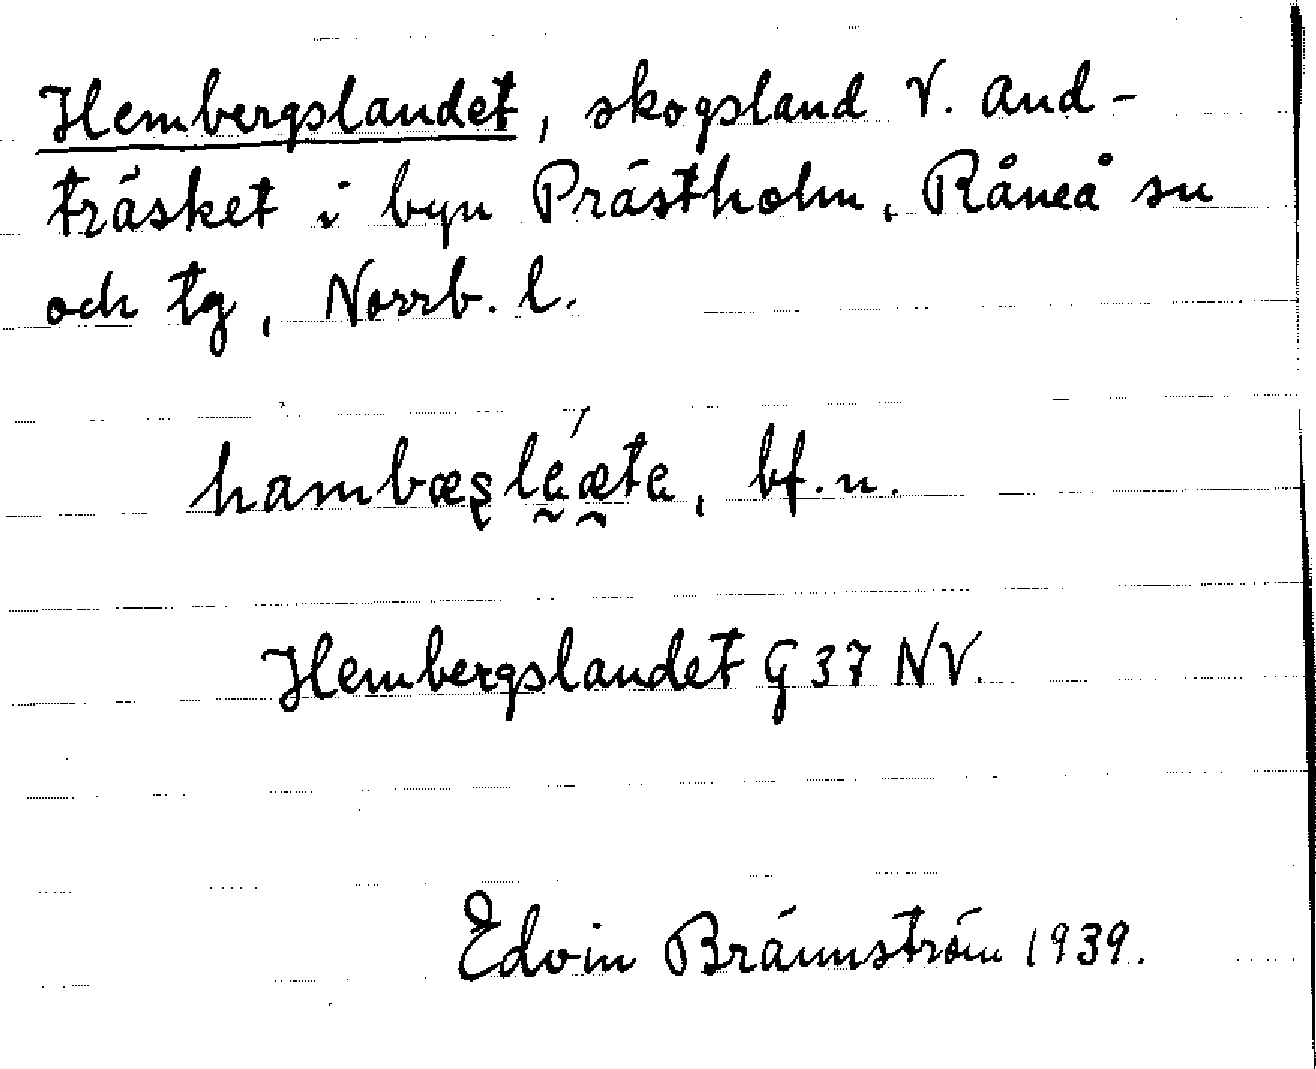 Hembergslandet, skogsland V. And-
träsket i byn Prästholm, Råneå sn
och tg, Norrb. l.
hambæʂlḛ´æ̰te, bf. n.
Hembergslandet G 37 NV.
Edvin Brännström 1939.